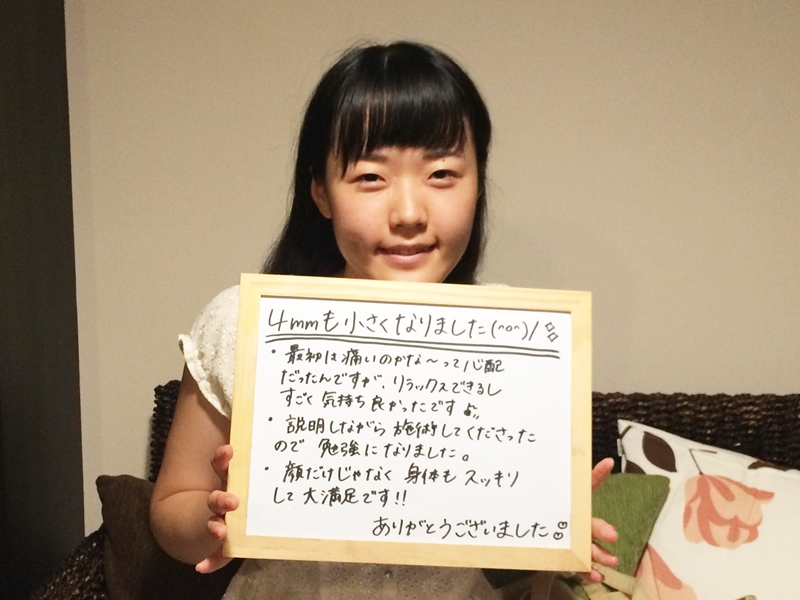 4mmも小さくなりました(^o^)/
・最初は痛いのかな〜って心配
だったんですが、リラックスできるし
すごく気持ち良かったです♪
・説明しながら施術してくださった
ので勉強になりました。
・顔だけじゃなく身体もスッキリ
して大満足です!!
ありがとうございました